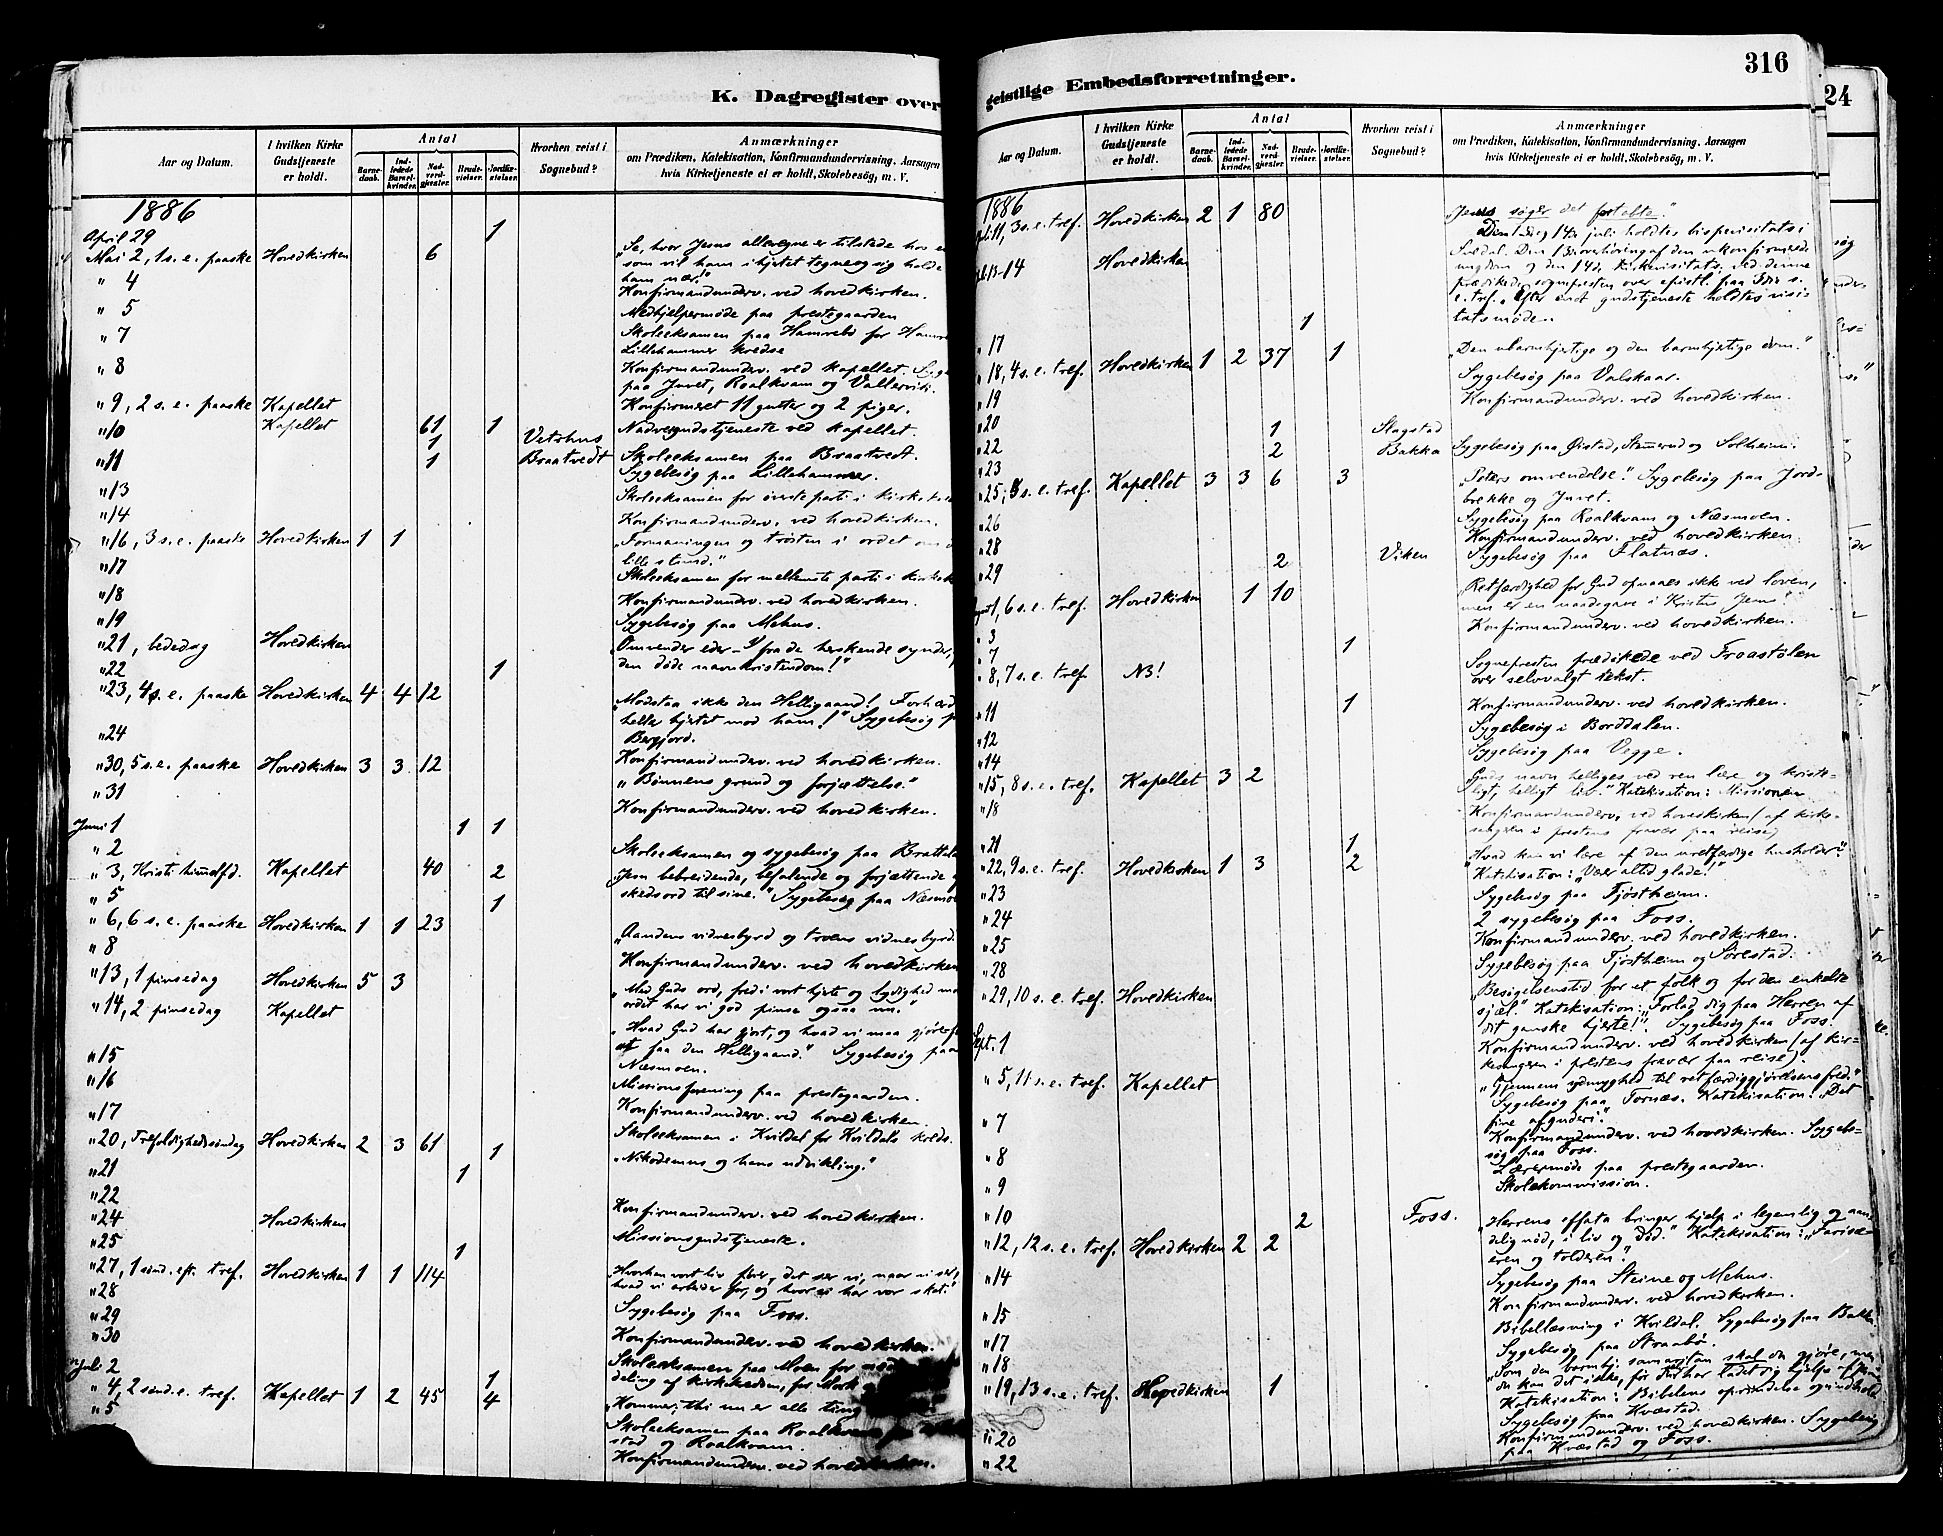 K. Dagregister over
Aar og Datum.
I hvilken Kirke Gudstjeneste er holdt.
Antal
Barnedaab.
Indledede Barselkvinder.
Nadverdgjester.
Brudevielser.
Jordfæstelser.
Hvorhen reist i Sognebud?
Anmærkninger
om Prædiken, Katekisation, Konfirmandundervisning. Aarsagen
hvis Kirketjeneste ei er holdt, Skolebesög, m. V.
1886
April 29 1
Mai 2, 1 s. e. paaske Hovedkirken 6 „Se, hvor Jesus allevegne er tilstede hos
som vil ham i hjertet tegne og sig holde
ham nær!"
" 4 Konfirmandunderv. ved hovedkirken.
" 5 Medhjelpermøde paa prestegaarden
" 7 Skoleeksamen paa Hamrebø for
Lillehammer kredse
" 8 Konfirmandunderv. ved kapellet.
paa Juvet, Roalkvam og
" 9, 2 s. e. paaske Kapellet Konfirmeret 11 gutter og 2 piger.
" 10 Kapellet 61 1 Nadvergudstjeneste ved kapellet.
1 Vetrhus
" 11 1 Braatvedt Skoleeksamen paa Braatvedt.
Sygebesøg paa Lillehammer.
" 13 Skoleeksamen for øverste parti i
" 14 Konfirmandunderv. ved hovedkirken.
" 16, 3 s. e. paaske Hovedkirken 1 1 „Formaningen og trøsten i ordet om
lille stund."
" 17 Skoleeksamen for mellemste parti i
" 18 Konfirmandunderv. ved hovedkirken.
" 19 Sygebesøg paa Mehus.
" 21, bededag Hovedkirken „Omvender eder – fra de herskende synder,
den døde navnkristendom!"
" 22 1
" 23, 4 s. e. paaske Hovedkirken 4 4 12 „Modstaa ikke den Helligaand!
heller hjertet mod ham!" Sygebesøg
Bergjord.
" 24 Konfirmandunderv. ved hovedkirken.
" 30, 5 s. e. paaske Hovedkirken 3 3 12 „Bønnens grund og forjættelse"
" 31 Konfirmandunderv. ved hovedkirken.
Juni 1 1 1
" 2 Skoleeksamen og sygebesøg paa
" 3, Kristi himmelfd. Kapellet 40 2 „Jesu bebreidende, befalende og forjættende
skedsord til sine." Sygebesøg paa Næsmoen
" 5 1
" 6, 6 s. e. paaske Hovedkirken 1 1 23 „Aandens vidnesbyrd og troens vidnesbyrd.
" 8 Konfirmandunderv. ved hovedkirken
" 13, 1 pinsedag Hovedkirken 5 3 „Med Guds ord, fred i vort hjerte og lydighed mod
ordet har vi god pinse ogsaa nu."
" 14, 2 pinsedag Kapellet „Hvad Gud har gjort, og hvad vi maa gjøre
at faa den Helligaand." Sygebesøg paa
Næsmoen.
" 15 Missionsforening paa prestegaarden.
" 16 Konfirmandunderv. ved hovedkirken.
" 17 Skoleeksamen i Kvildal for Kvildals kreds.
" 20, Trefoldighedssøndag Hovedkirken 2 3 61 1 „Nikodemus og hans udvikling."
" 21 1
" 22 Konfirmandunderv. ved hovedkirken.
" 24 Hovedkirken Missionsgudstjeneste.
" 25 1
" 27, 1 sønd. eft. tref. Hovedkirken 1 1 114 „Hvorhen vort liv fører, det ser vi, naar vi ser,
hvad vi arbeider for, og hvor vi har vor skat."
" 28 Sygebesøg paa Foss.
" 29
" 30 Konfirmandunderv. ved hovedkirken.
Juli 2 1 Skoleeksamen paa Moen for
deling af kirkekredsen, for
" 4, 2 sønd. e. tref. Kapellet 1 2 45 4 „Kommer; thi nu er alle ting
" 5 Skoleeksamen paa Roalkvam
stad og Roalkvam.
Konfirmandunderv. ved hovedkirken.
geistlige Embedsforretninger.
316
24
Aar og Datum.
I hvilken Kirke Gudstjeneste er holdt.
Antal
Barnedaab.
Indledede Barselkvinder.
Nadverdgjester.
Brudevielser.
Jordfæstelser.
Hvorhen reist i Sognebud?
Anmærkninger
om Prædiken, Katekisation, Konfirmandundervisning. Aarsagen
hvis Kirketjeneste ei er holdt, Skolebesög, m. V.
1886
Juli 11, 3 s. e. tref. Hovedkirken 2 1 80 Jesus søger det fortabte."
Juli 13-14 Hovedkirken Den 13de og 14de juli holdtes bispevisitats i
Suldal. Den 13de overhøring af den ukonfirmerede
ungdom og den 14de kirkevisitats; ved denne
prædikede sognepresten over epistl. paa 3die s.
e. tref. Efter endt gudstjeneste holdtes visi-
tatsmøde.
" 17 1
" 18, 4 s. e. tref. Hovedkirken 1 2 37 1 „Den ubarmhjertige og den barmhjertige dom."
" 19 Sygebesøg paa Valskaar.
" 20 Konfirmandunderv. ved hovedkirken.
" 22 1 Slagstad
" 23 2 Bakka Sygebesøg paa Øistad, Stemrud og Solheim.
" 25, 5 s. e. tref. Kapellet 3 3 6 3 „Peters omvendelse." Sygebesøg paa Jord-
brekke og Juvet.
" 26 Sygebesøg paa Roalkvam og Næsmoen.
" 28 Konfirmandunderv. ved hovedkirken.
" 29 2 Viken Sygebesøg paa Flatnæs.
August 1, 6 s. e. tref. Hovedkirken 1 10 „Retfærdighed for Gud opnaaes ikke ved loven,
men er en naadegave i Kristus Jesus."
" 3 Konfirmandunderv. ved hovedkirken.
" 7 1
" 8, 7 s. e. tref. NB! Sognepresten prædikede ved Froastølen
over selvvalgt tekst.
" 11 1 Konfirmandunderv. ved hovedkirken.
" 12 Sygebesøg i Borddalen.
" 14 Sygebesøg paa Vegge.
" 15, 8 s. e. tref. Kapellet 3 2 „Guds navn helliges ved ren lære og kriste-
ligt, helligt liv." Katekisation: Missionen
" 18 Konfirmandunderv. ved hovedkirken (af kirke-
sangeren i prestens fravær paa reise)
" 21 1
" 22, 9 s. e. tref. Hovedkirken 1 3 2 „Hvad kan vi lære af den uretfærdige husholder".
Katekisation: „Vær altid glade!"
" 23 Sygebesøg paa Tjøstheim.
" 24 2 sygebesøg paa Foss.
" 25 Konfirmandunderv. ved hovedkirken.
" 28 Sygebesøg paa Tjøstheim og Sørestad.
" 29, 10 s. e. tref. Hovedkirken „Besøgelsenstid for et folk og for den enkelte
sjæl." Katekisation: „Forlad dig paa Herren af
dit ganske hjerte!" Sygebesøg paa Foss.
Sept. 1 Konfirmandunderv. ved hovedkirken (af kir-
kesangeren i prestens fravær paa reise).
" 5, 11 s. e. tref. Kapellet „Gjennem ydmyghed til retfærdiggjørelsens fred."
Sygebesøg paa Tornæs. Katekisation: „Det
fine afguderi."
" 7 Konfirmandunderv. ved hovedkirken. Sygebe-
søg paa Foss.
" 8 Lærermøde paa prestegaarden.
" 9 Skolekommission.
" 10 2 Foss.
" 12, 12 s. e. tref. Hovedkirken 2 2 „Herrens effata bringer hjælp i legemlig og aan-
delig nød, i liv og død." Katekisation: „Farisæ-
eren og tolderen".
" 14 Sygebesøg paa Steine og Mehus.
" 15 Konfirmandunderv. ved hovedkirken.
" 17 Bibellæsning i Kvildal. Sygebesøg paa Bakka
" 18 Sygebesøg paa Straabø.
" 19, 13 s. e. tref. Hovedkirken 1 „Som den barmhj. samaritan skal du gjøre, men
du kan det ikke, før du har ladet dig hjælpe af
Katekisation: Bibelens oprindelse og indhold
Sygebesøg paa Kvæstad.
" 20 Konfirmandunderv. ved hovedkirken. Sygebesøg
" 22 paa Kvæstad og Foss.